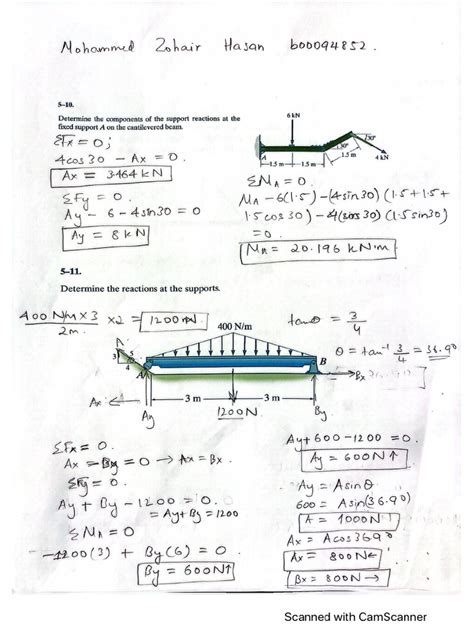 Mohammed Zohair Hasan b00094852.
5-10.
Determine the components of the support reactions at the
fixed support A on the cantilevered beam.
ΣFx = 0;
4cos30 - Ax = 0.
Ax = 3.464 kN
ΣFy = 0.
Ay - 6 - 4sin30 = 0
Ay = 8 kN
6 kN
30°
30°
A
1.5 m
1.5 m
1.5 m
4 kN
ΣMA = 0.
MA - 6(1.5) - (4sin30)(1.5+1.5+
1.5cos30) - 4(cos30)(1.5sin30)
= 0.
MA = 20.196 kN.m
5-11.
Determine the reactions at the supports.
400 N/m × 3 × 2 = 1200
2m.
400 N/m
3
5
4
A
B
Bx
3 m
3 m
Ax
Ay
1200N.
By
tanθ = 3/4
θ = tan⁻¹ 3/4 = 36.90
ΣFx = 0.
Ax - Bx = 0 → Ax = Bx.
ΣFy = 0.
Ay + By - 1200 = 0.
= Ay + By = 1200
ΣMA = 0
-1200(3) + By(6) = 0.
By = 600N↑
Ay + 600 - 1200 = 0.
Ay = 600N↑
Ay = Asinθ
600 = Asin(36.90)
A = 1000N
Ax = Acos3690
Ax = 800N←
Bx = 800N→
Scanned with CamScanner